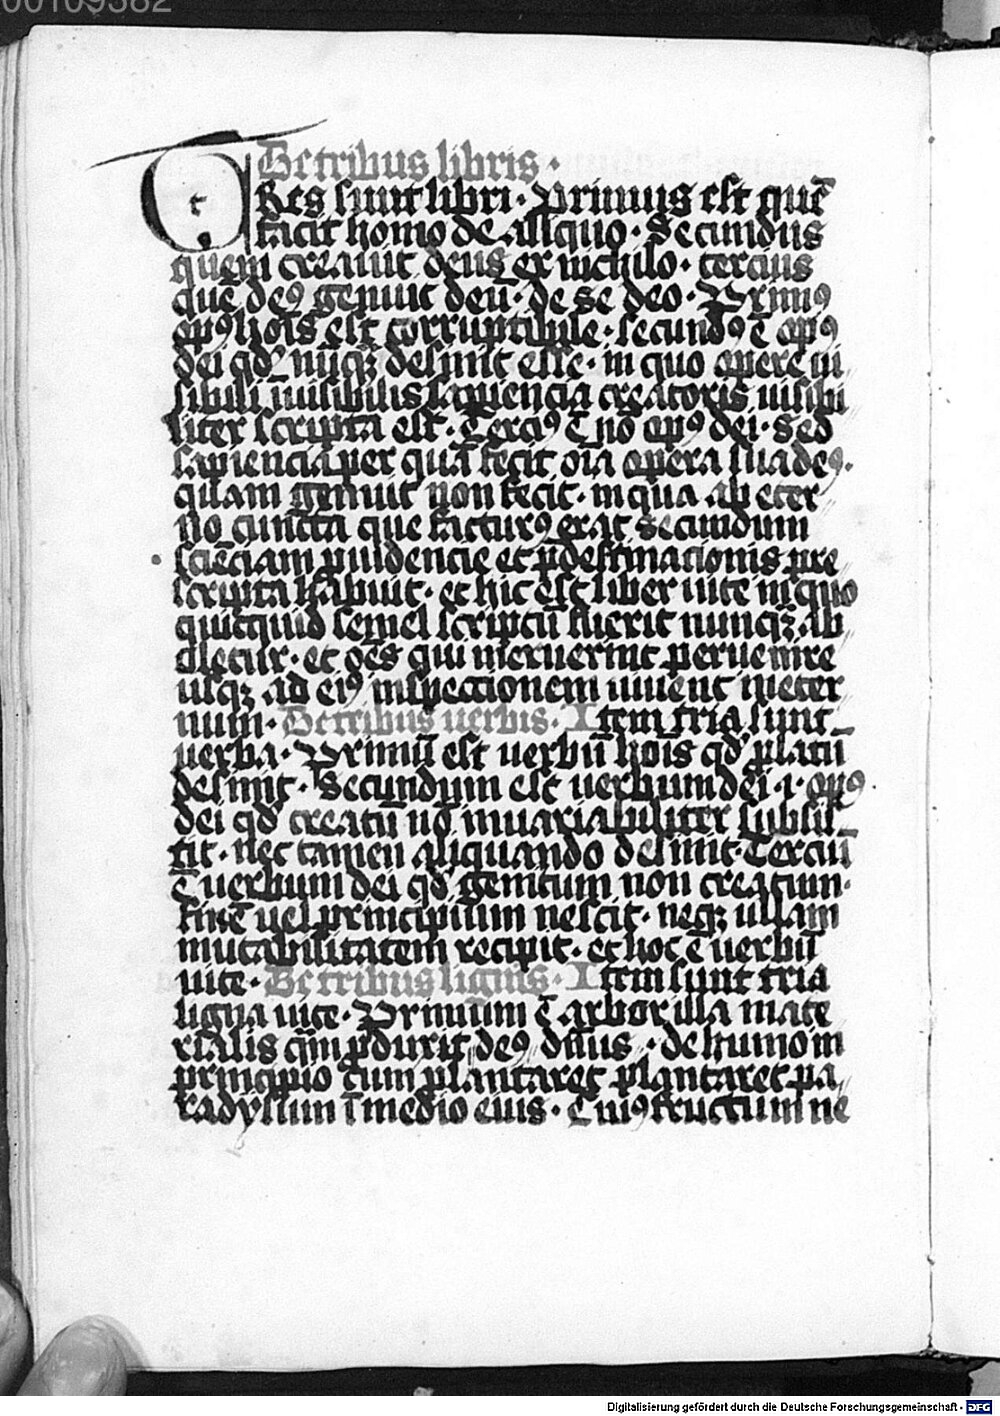 00109382
De tribus libris ·
t
Res sunt libri · Primus est quē
facit homo de aliquo · Secundus
quem creauit deus ex nichilo · tercius
quē deꝯ genuit deū · de se deo · Primꝯ
opꝯ hoīs est corruptibile · secundꝯ ē opꝯ
dei qđ nūqꝫ desinit esse · in quo opere ui
sibili inuisibilis sapiencia creatoris uisibi
liter scripta est · Terciꝯ ē nō opꝯ dei · sed
sapiencia per quā fecit oīa opera sua deꝯ ·
quam genuit non fecit · in qua ab eter
no cuncta que facturꝯ erat secundum
sciēciam puidencie et p̄destinacionis pre
scripta habuit · et hic est liber uite in quo
quicquid semel scriptū fuerit nunqꝫ ab
oletur · et oēs qui meruerint peruenire
usqꝫ ad eiꝯ inspectionem uiuent in eter
num · De tribus uerbis · Item tria sunt
uerba · Primū est uerbū hoīs qđ platū
desinit · Secundum est uerbum dei · i · opꝯ
dei qđ creatū nō inuariabiliter subsis
tit · nec tamen aliquando desinit · Terciū
ē uerbum dei qđ genitum non creatum ·
finē uel principium nescit · neqꝫ ullam
mutabilitatem recipit · et hoc ē uerbū
uite · De tribus lignis · Item sunt tria
ligna uite · Primum ē arbor illa mate
rialis qm̄ p̄duxit deꝯ dn̄us · de humo in
principio cum plantaret plantaret pa
radysum ī medio eius · Cuiꝯ fructum ne
Digitalisierung gefördert durch die Deutsche Forschungsgemeinschaft - DFG